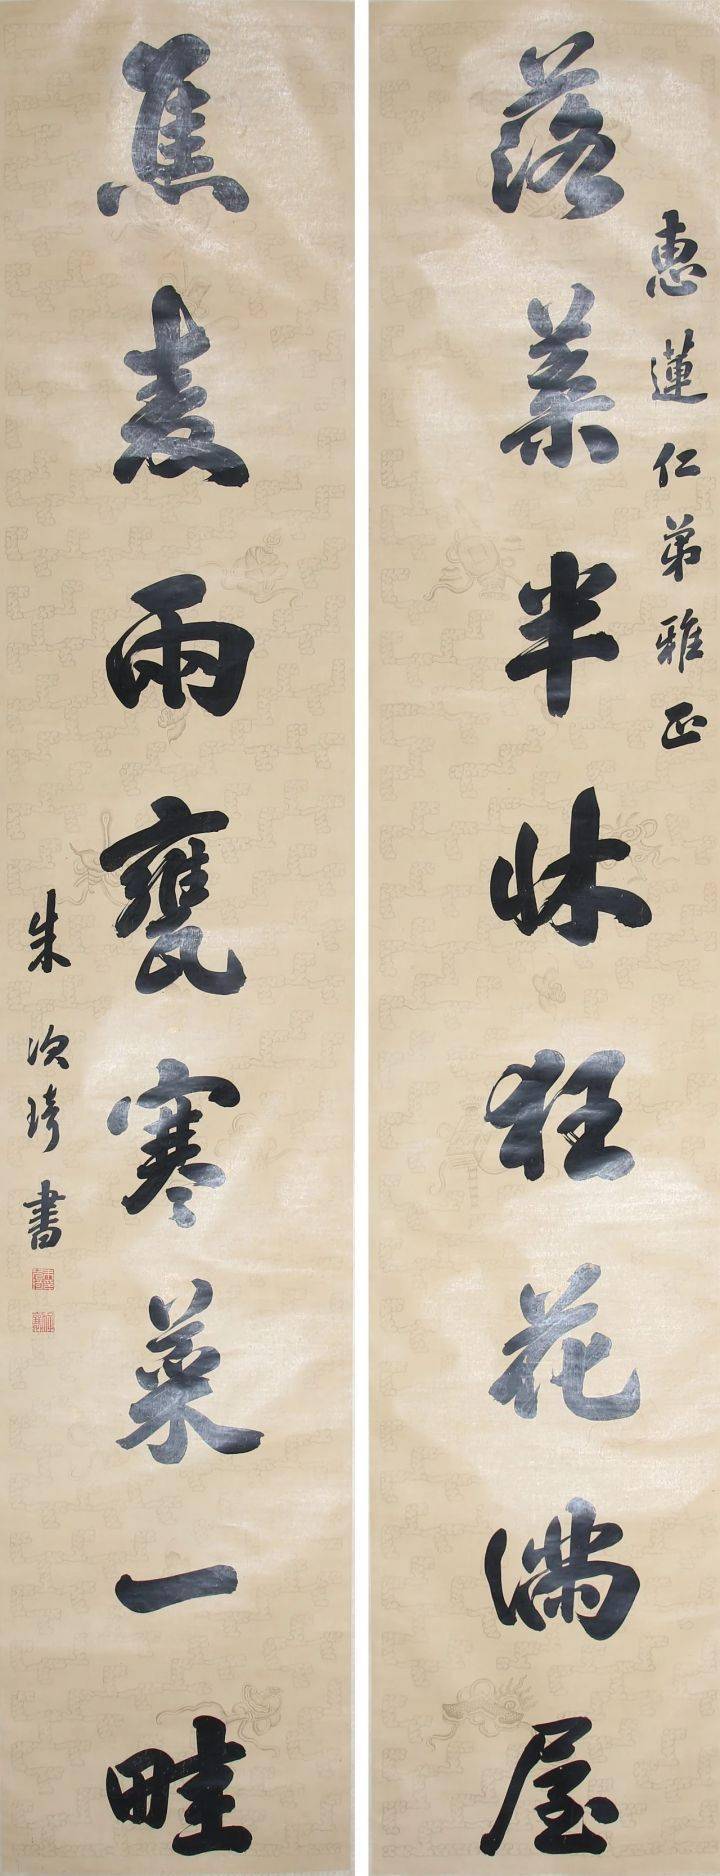 惠蓮仁弟雅正
落葉半牀狂花滿屋
焦麦兩甕寒菜一畦
朱次琦書